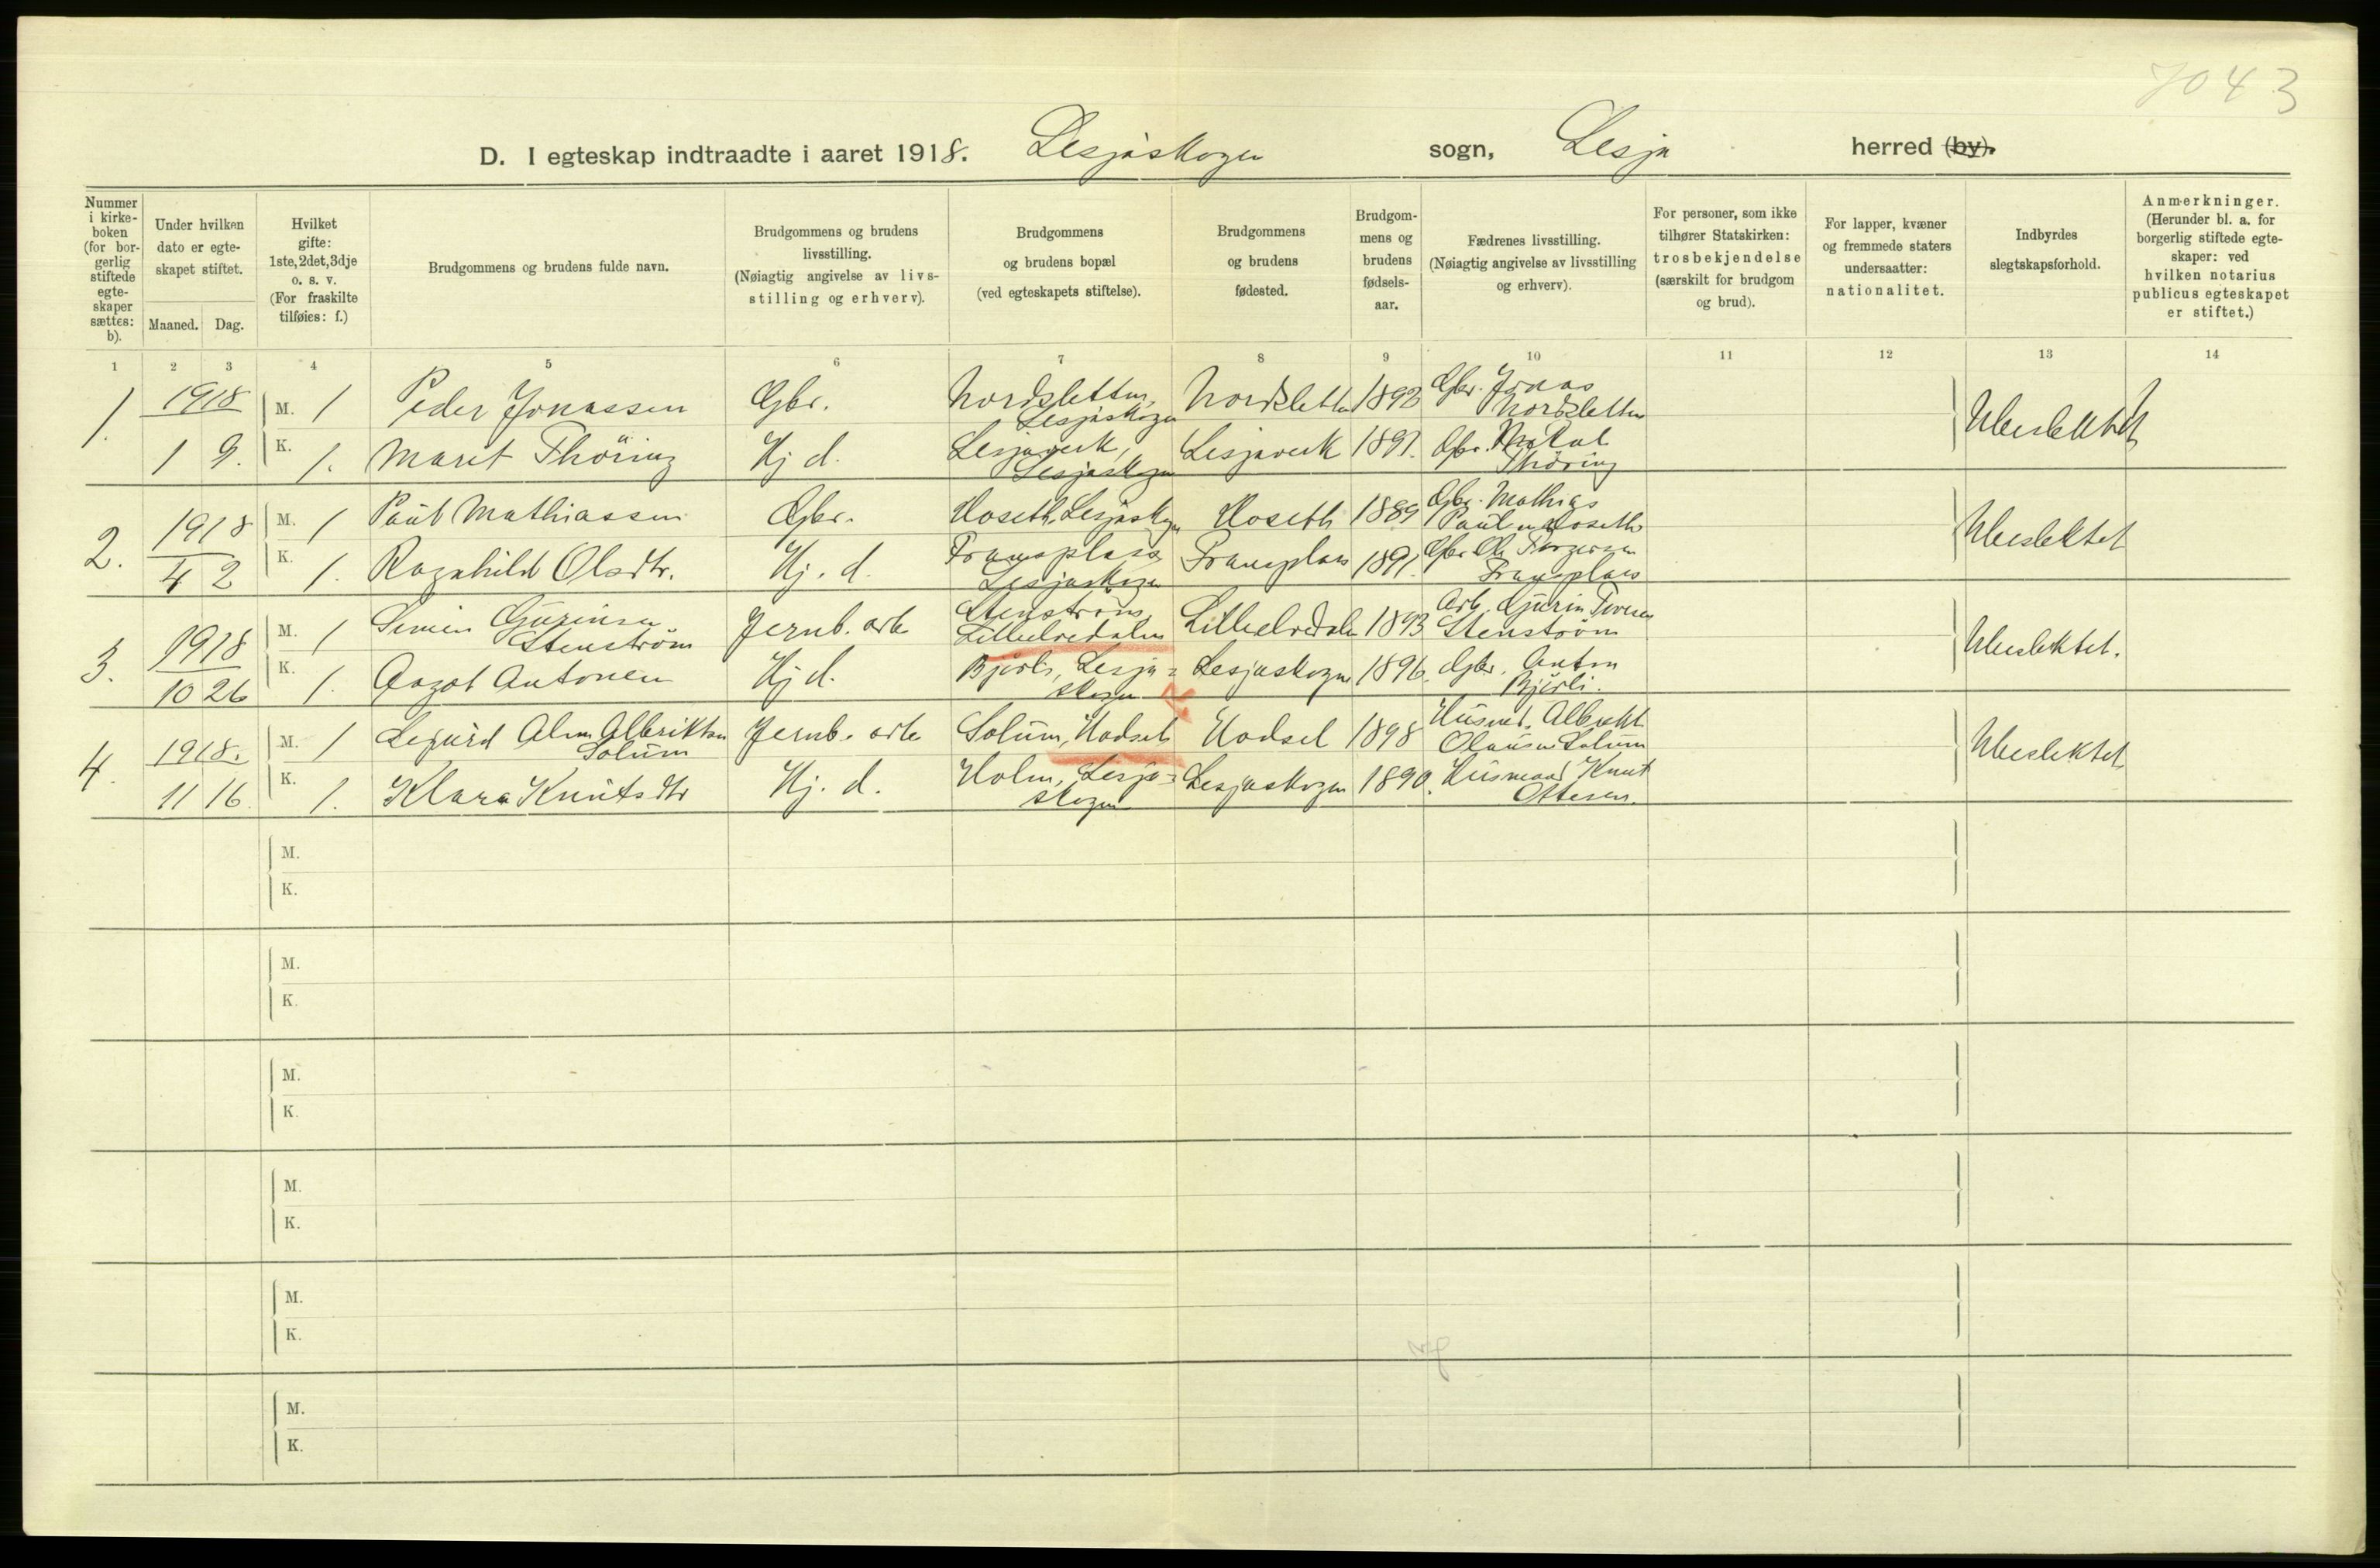 7043
D. I egteskap indtraadte i aaret 1918. Lesjaskogen sogn, Lesja herred (by).
Nummer i kirkeboken (for borgerlig stiftede egteskaper sættes: b).
Under hvilken dato er egteskapet stiftet.
Maaned. Dag.
Hvilket gifte: 1ste, 2det, 3dje o. s. v. (For fraskilte tilføies: f.)
Brudgommens og brudens fulde navn.
Brudgommens og brudens livsstilling. (Nøiagtig angivelse av livsstilling og erhverv).
Brudgommens og brudens bopæl (ved egteskapets stiftelse).
Brudgommens og brudens fødested.
Brudgommens og brudens fødselsaar.
Fædrenes livsstilling. (Nøiagtig angivelse av livsstilling og erhverv).
For personer, som ikke tilhører Statskirken: trosbekjendelse (særskilt for brudgom og brud).
For lapper, kvæner og fremmede staters undersaatter: nationalitet.
Indbyrdes slegtskapsforhold.
Anmerkninger. (Herunder bl. a. for borgerlig stiftede egteskaper: ved hvilken notarius publicus egteskapet er stiftet.)
1 2 3 4 5 6 7 8 9 10 11 12 13 14
1. 1918 M. 1 Peder Jonassen Gbr. Nordsletten, Lesjaskogen Nordsletten 1892 Gbr. Jonas Nordsletten Ubeslektet
1 9. K. 1. Marit Thöring Hj d. Lesjaverk, Lesjaskogen Lesjaverk 1891. Gbr. Thöring
2. 1918 M. 1 Paul Mathiassen Gbr. Hoseth, Lesjaskogen Hoseth 1889 Gbr. Mathias Paulsen Hoseth Ubeslektet
4 2 K. 1. Ragnhild Olsdtr. Hj. d. Fransplass Lesjaskogen Fransplass 1891. Gbr. Ole Torgersen Fransplass
3. 1918 M. 1 Simen Gurinsen Stenström Jernb. arb. Stenström, Lilleelvedalen Lilleelvedalen 1893 Arb. Gurin Stenström Ubeslektet.
10 26 K. 1. Aagot Antonen Hj d. Bjorli, Lesjaskogen Lesjaskogen 1896. Gbr. Anton Bjorli.
4. 1918. M. 1 Sigurd Alm Albriktsen Solum Jernb. arb. Solum, Hadsel Hadsel 1898 Husmd. Albrikt Olausen Solum Ubeslektet
11 16. K. 1. Klara Knutsdtr Hj. d. Holm, Lesjaskogen Lesjaskogen 1890. Husmand Knut Ottesen.
M.
K.
M.
K.
M.
K.
M.
K.
M.
K.
M.
K.